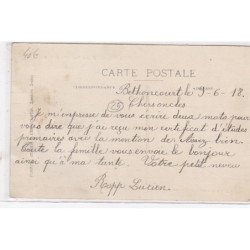 406
CARTE POSTALE
CORRESPONDANCE
Bethoncourt le 9-6-18.
25
Chers oncles
Je m'impresse de vous écrire deux mots pour
vous dire que j'ai reçu mon certificat d'études
primaires avec la mention de Assez bien.
Toute la famille vous envoie le bonjour
ainsi qu'à ma tante Votre petit neveu
Rapp Lucien.